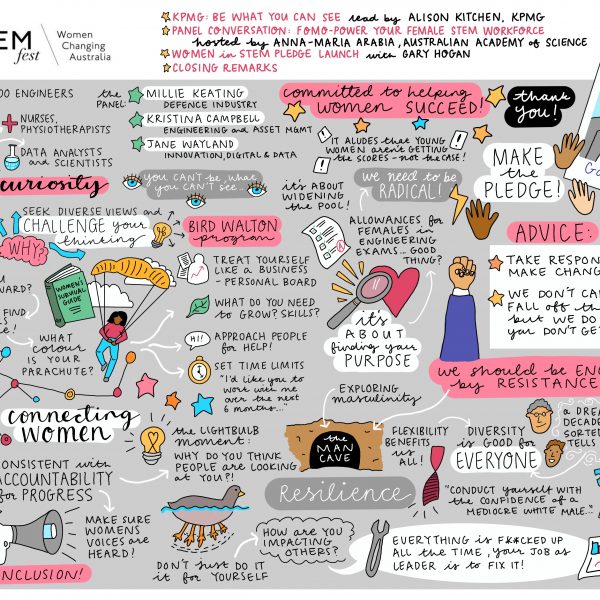 EM
fest
Women
Changing
Australia
KPMG: BE WHAT YOU CAN SEE read by ALISON KITCHEN, KPMG
PANEL CONVERSATION: FOMO-POWER YOUR FEMALE STEM WORKFORCE
hosted by ANNA-MARIA ARABIA, AUSTRALIAN ACADEMY of SCIENCE
WOMEN in STEM PLEDGE LAUNCH with GARY HOGAN
CLOSING REMARKS
OO ENGINEERS
NURSES,
PHYSIOTHERAPISTS
DATA ANALYSTS
and SCIENTISTS
the
PANEL:
MILLIE KEATING
DEFENCE INDUSTRY
KRISTINA CAMPBELL
ENGINEERING and ASSET MGMT
JANE WAYLAND
INNOVATION, DIGITAL & DATA
committed to helping
WOMEN SUCCEED!
thank
YOU!
IT ALUDES that YOUNG
WOMEN aren't GETTING
the SCORES - not the CASE!
MAKE
the
PLEDGE!
curiosity
you can't be, what
you can't see...
it's ABOUT
WIDENING
the POOL!
we need to be
RADICAL!
SEEK DIVERSE VIEWS and
CHALLENGE your
thinking
WHY?
BIRD WALTON
program
ALLOWANCES for
FEMALES in
ENGINEERING
EXAMS... GOOD
THING?
ADVICE:
TAKE RESPON
MAKE CHANG
WE DON'T CA
FALL OFF the
but WE DO
YOU DON'T GET
WARD?
FIND
WOMEN'S
SURVIVAL
GUIDE
TREAT YOURSELF
LIKE A BUSINESS
- PERSONAL BOARD
WHAT DO YOU NEED
to GROW? SKILLS?
WHAT
COLOUR
IS YOUR
PARACHUTE?
HI!
APPROACH PEOPLE
for HELP!
SET TIME LIMITS
"I'd like you to
work with me
over the next
6 months..."
it's
ABOUT
finding your
PURPOSE
we should be EN
by RESISTANCE
connecting
WOMEN
EXPLORING
masculinity
the
MAN
CAVE
FLEXIBILITY
BENEFITS
us ALL!
DIVERSITY
is GOOD for
EVERYONE
a DREA
DECADE
SORTED
TELLS
the LIGHTBULB
moment:
WHY DO YOU THINK
PEOPLE are LOOKING
at YOU?!
ONSISTENT with
ACCOUNTABILITY
for PROGRESS
Resilience
"CONDUCT yourself WITH
the CONFIDENCE of a
MEDIOCRE WHITE MALE..."
MAKE SURE
WOMENS
VOICES are
HEARD!
HOW are YOU
IMPACTING
OTHERS?
DON'T JUST DO IT
it for YOURSELF
EVERYTHING is F✱✱CKED UP
ALL the TIME, your JOB as
LEADER is to FIX IT!
NCLUSION!